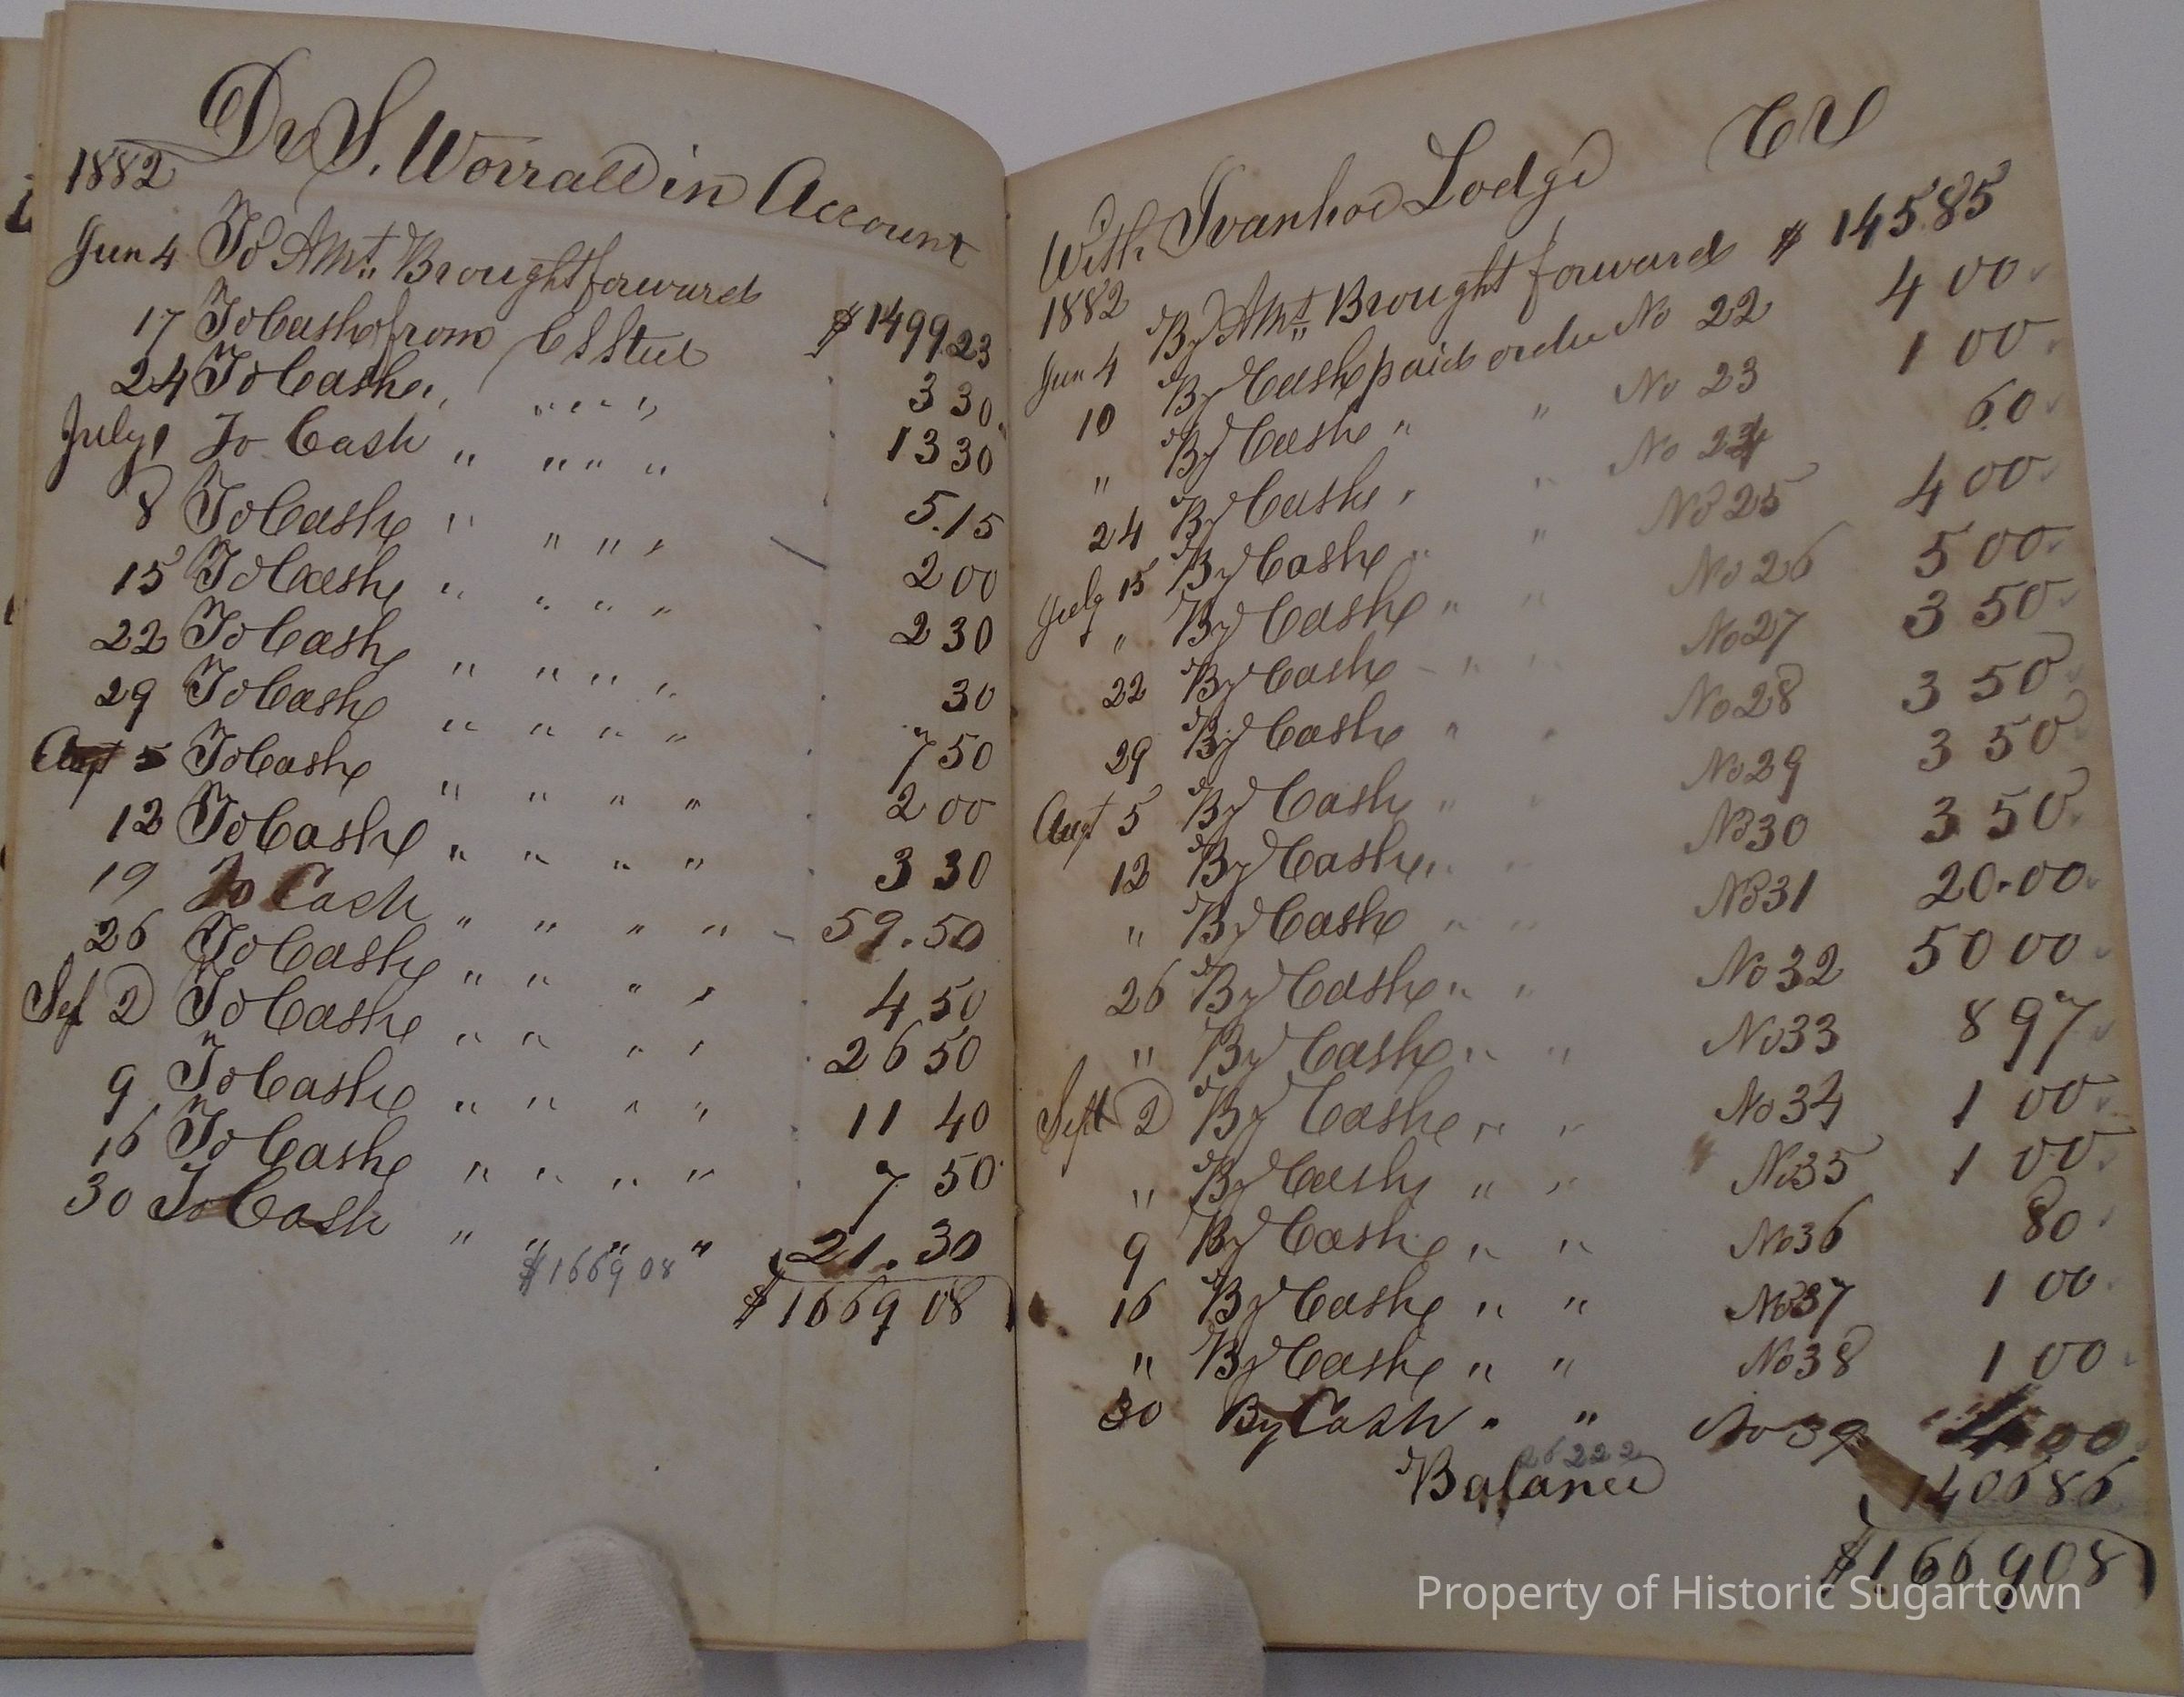 Dr S. Worrall in Account
1882
Jun 4 To Amt. Brought forward $1499.23
17 To Cash from C S Steel 3 30
24 To Cash " " " " " 13 30
July 1 To Cash " " " " 5.15
8 To Cash " " " " 2 00
15 To Cash " " " " 2 30
22 To Cash " " " " 30
29 To Cash " " " " 7 50
Augt 5 To Cash " " " " 2 00
12 To Cash " " " " 3 30
19 To Cash " " " " 59.50
26 To Cash " " " " 4 50
Sep 2 To Cash " " " " 26 50
9 To Cash " " " " 11 40
16 To Cash " " " " 7 50
30 To Cash " " " " 21.30
$1669 08
$1669 08
With Ivanhoe Lodge Cr
1882 By Amt. Brought forward $ 145.85
Jun 4 By Cash paid order No 22 4 00
10 By Cash " " No 23 1 00
" By Cash " " No 24 60
24 By Cash " " No 25 4 00
July 15 By Cash " " No 26 5 00
" By Cash " " No 27 3 50
22 By Cash " " No 28 3 50
29 By Cash " " No 29 3 50
Augt 5 By Cash " " No 30 3 50
12 By Cash " " No 31 20.00
" By Cash " " No 32 50 00
26 By Cash " " No 33 8 97
" By Cash " " No 34 1 00
Sept 2 By Cash " " No 35 1 00
" By Cash " " No 36 80
9 By Cash " " No 37 1 00
16 By Cash " " No 38 1 00
" By Cash " "
30 By Cash " " No 39 4 00
262 22
Balance 1406 86
$1669 08
Property of Historic Sugartown